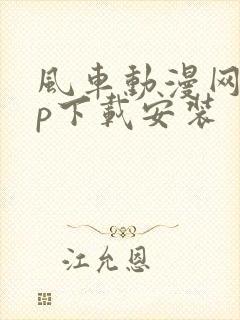 風車動漫网
p下載安裝
江允恩